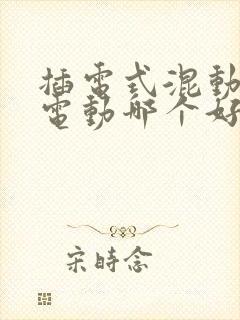 插電式混動
電動哪个好
宋時念